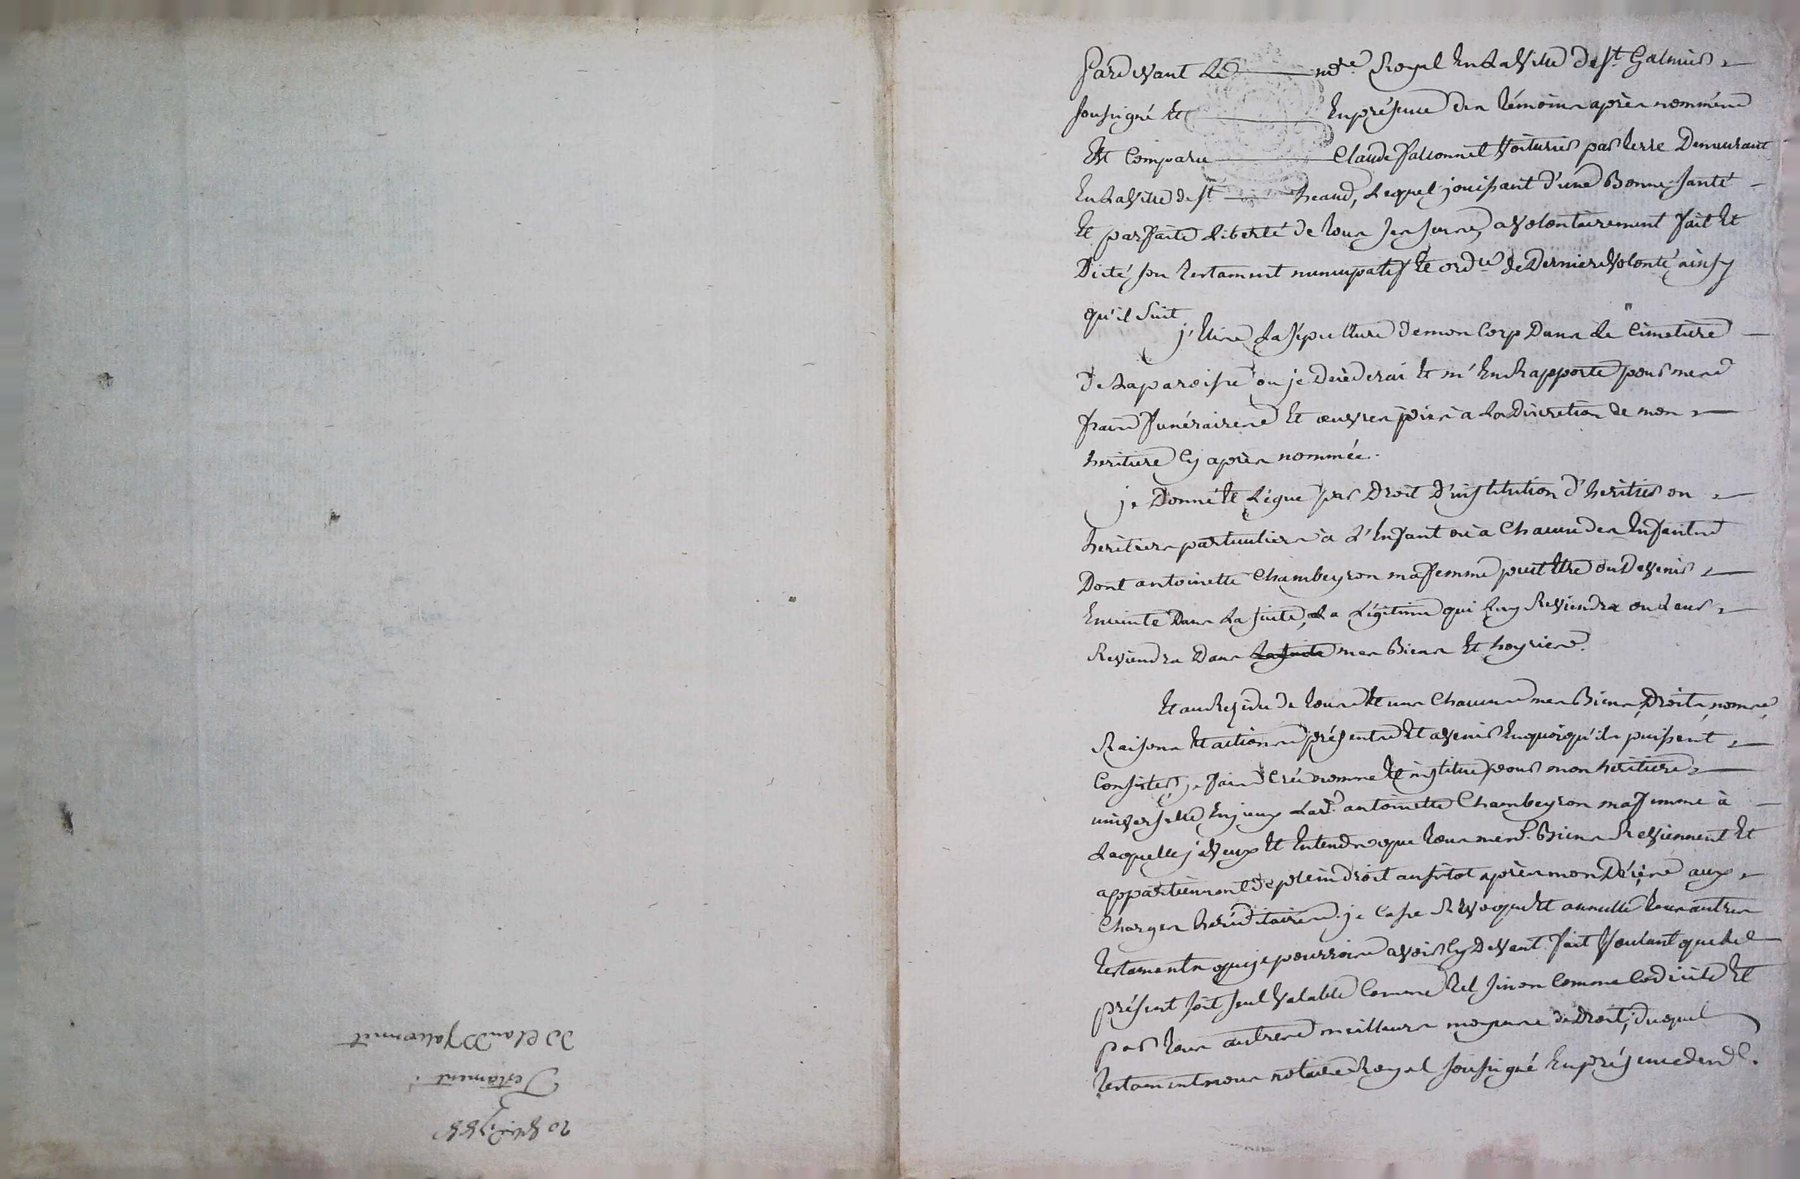 Pardevant Le nore Royal En La Ville de St Galmier
soussigné Et En présence des témoins après nommés
Est Comparu Claude Falconnet Voiturier par terre Demeurant
En La Ville de St heand, Lequel jouissant d'une Bonne santé
Et parfaite Liberté de tous ses sens, a volontairement fait Et
Dicté son testament nuncupatif Et ordce de Derniere Volonté ainsy
qu'il suit
j'Elis La sépulture de mon Corp Dans le Cimetiere
De La paroisse ou je Decederai Et m'En Rapporte pour mes
frais funéraires Et œuvres pies à La Discretion de mon
heritiere Cy après nommée.
je Donne Et Légue par Droit D'institution d'heritier ou
heritiers particuliers à L'Enfant ou à Chacun des Enfants
Dont antoinette Chambeyron ma femme peut Etre ou Devenir
Enceinte Dans La suite, La Légitime qui Luy Reviendra ou Leur
Reviendra Dans La suite mes Biens Et hoyries.
Et au Residu de tous Et uns Chacuns mes Biens, Droits, noms,
Raisons Et actions présents Et avenir En quoi qu'ils puissent
Consister, je fais Crée nomme Et institue pour mon heritiere
universelle Laditte antoinette Chambeyron ma femme à
Laquelle je Veux Et Entends que tous mesd. Biens Reviennent Et
appartiennent de plein droit aussitot après mon Décès aux
Charges héréditaires. je Casse Revoque Et annulle tous autres
testaments que je pourrois avoir Cy Devant fait Voulant que Le
présent soit seul Valable Comme tel sinon Comme Codicile Et
par tous autres meilleurs moyens de Droit, Duquel
testament nous notaire Royal soussigné En présence desd.
20
Testament
De Claude Falconnet